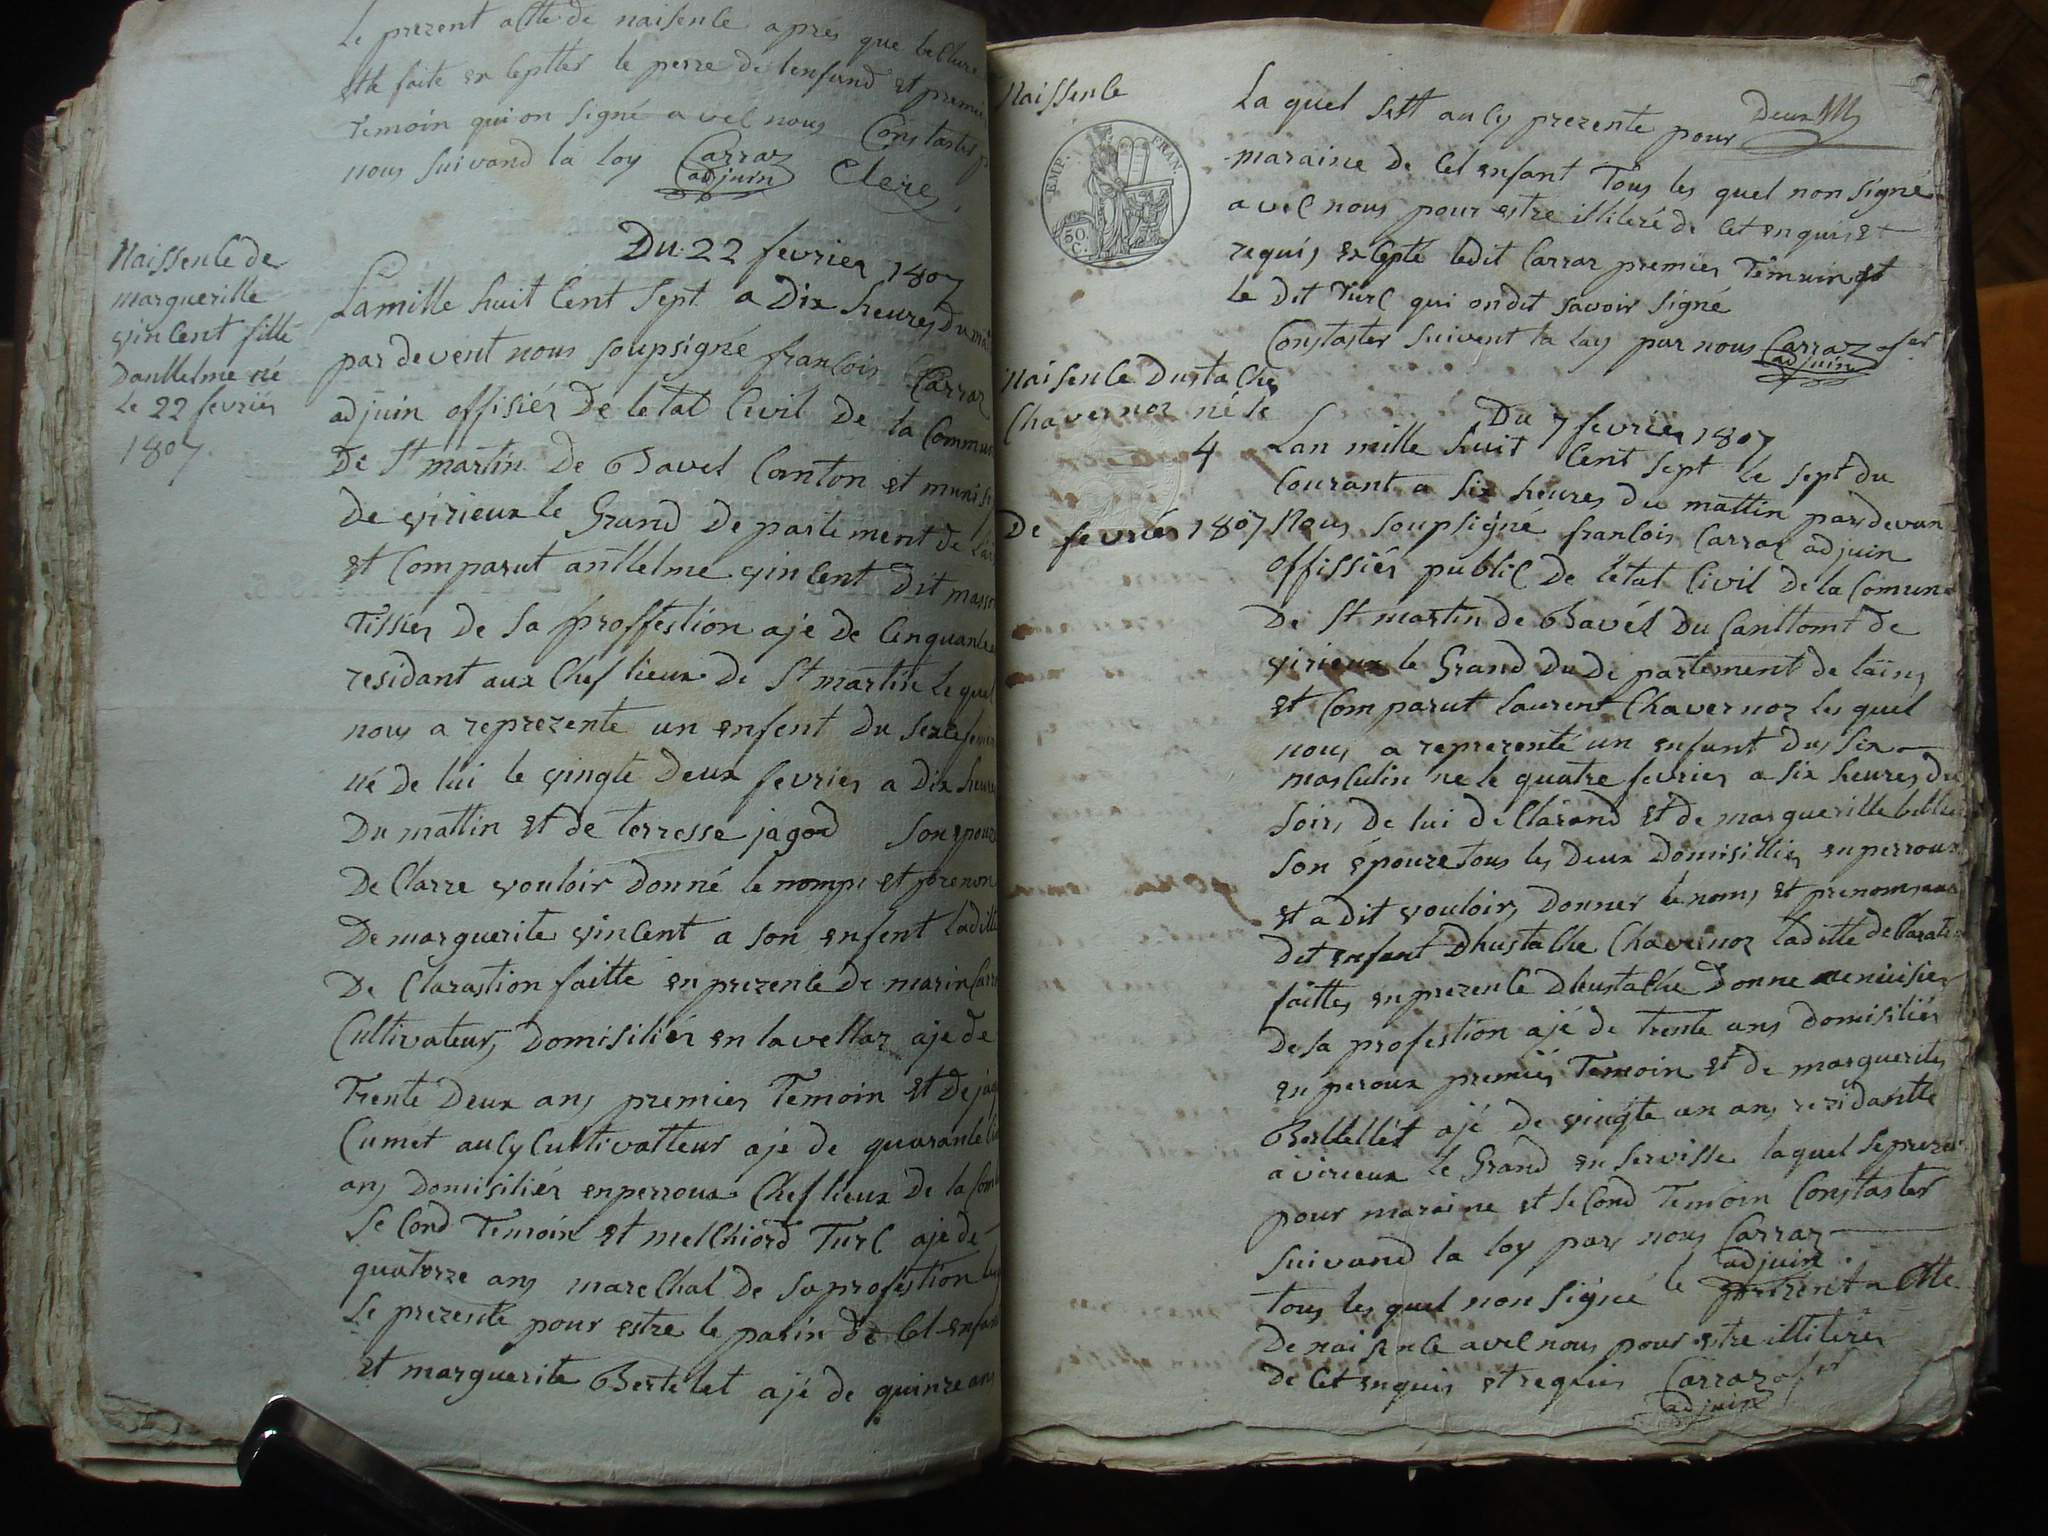 Le prezent actte de naisence aprés que lecture
ette faite excepter le perre de lenfand et premier
temoin qui on signé avec nous Constaster p
nous suivand la loy Carraz Clerc
adjuin
Naissence de
margueritte
vincent fille
Danttelme né
le 22 fevrier
1807
Du 22 fevrier 1807
Lamille huit Cent Sept a Dix heures du ma
par devent nous soupsigné francois Carraz
adjuin offisiér De letat Civil De la Commu
De St martin De Bavel Canton et munisi
De virieux le Grand Departement de l'ai
et Comparut anttelme vincent Dit masson
Tissier De sa proffestion aje De Cinquante
residant aux Chef lieux De St martin le quel
nous a reprezente un enfent Du sexe femen
né de lui le vingte Deux fevrier a Dix heure
Du mattin et de terresse jagod son epouze
De Clarre vouloir Donné le nomps et prenon
De marguerite vincent a son enfent Laditte
De Clarastion faitte en prezence De marin Carr
Cultivateur, Domisiliér en lavellaz aje De
Trente Deux ans premier Temoin et De jaq
Cumet aucy Cultivatteur aje de quarante
ans Domisiliér en perroux Chef lieux De la Com
se Cond Temoin et melChiord Turc aje De
quatorze ans mareChal De sa profestion
se prezente pour estre le parin de Cet enfan
et marguerite Bertelet ajé de quinze ans
Naissence
EMP. FRAN.
50 C.
La quel sett aucy prezente pour Deux
maraine De Cet enfant Tous les quel non signé
avec nous pour estre illiteré de Cet enquis et
requis excepté ledit Carraz premier Temoin et
le Dit Turc qui ondit savoir signé
Constaster suivent la loy par nous Carraz
adjuin
Naisence Dustache
Chavernoz né le
4
De fevrier 1807
Du 7 fevrier 1807
Lan mille huit Cent sept le sept du
Courant a six heures du mattin par devan
Nous soupsigné francois Carraz adjuin
offissiér public De létat Civil De la Comune
De St martin de Bavél Du Canttomt de
virieux le Grand Du De partement de lains
et Comparut Laurent Chavernoz les quel
nous a reprezenté un enfant Du six
masculin ne le quatre fevrier a six heures du
soirs de lui deClarand et de margueritte
son épouze tous les Deux Domisilliés en perroux
et a Dit vouloir, Donner le noms et prenoms aux
Dit enfant Dhustache Chavernoz Laditte deClarati
faittes en prezence Dhustache Donne menuisier
De sa profestion ajé de trente ans Domisiliér
en peroux premier Temoin et de marguerites
Berttellét ajé de vingte un ans residantte
a virieux le Grand en servisse laquel se prezen
pour maraine et se Cond Temoin Constaster
suivand la loy par nous Carraz
adjuin
tous les quel non signé le prezent actte
De naisence avec nous pour estre illiterer
de Cet enquis et requis Carraz
adjuin